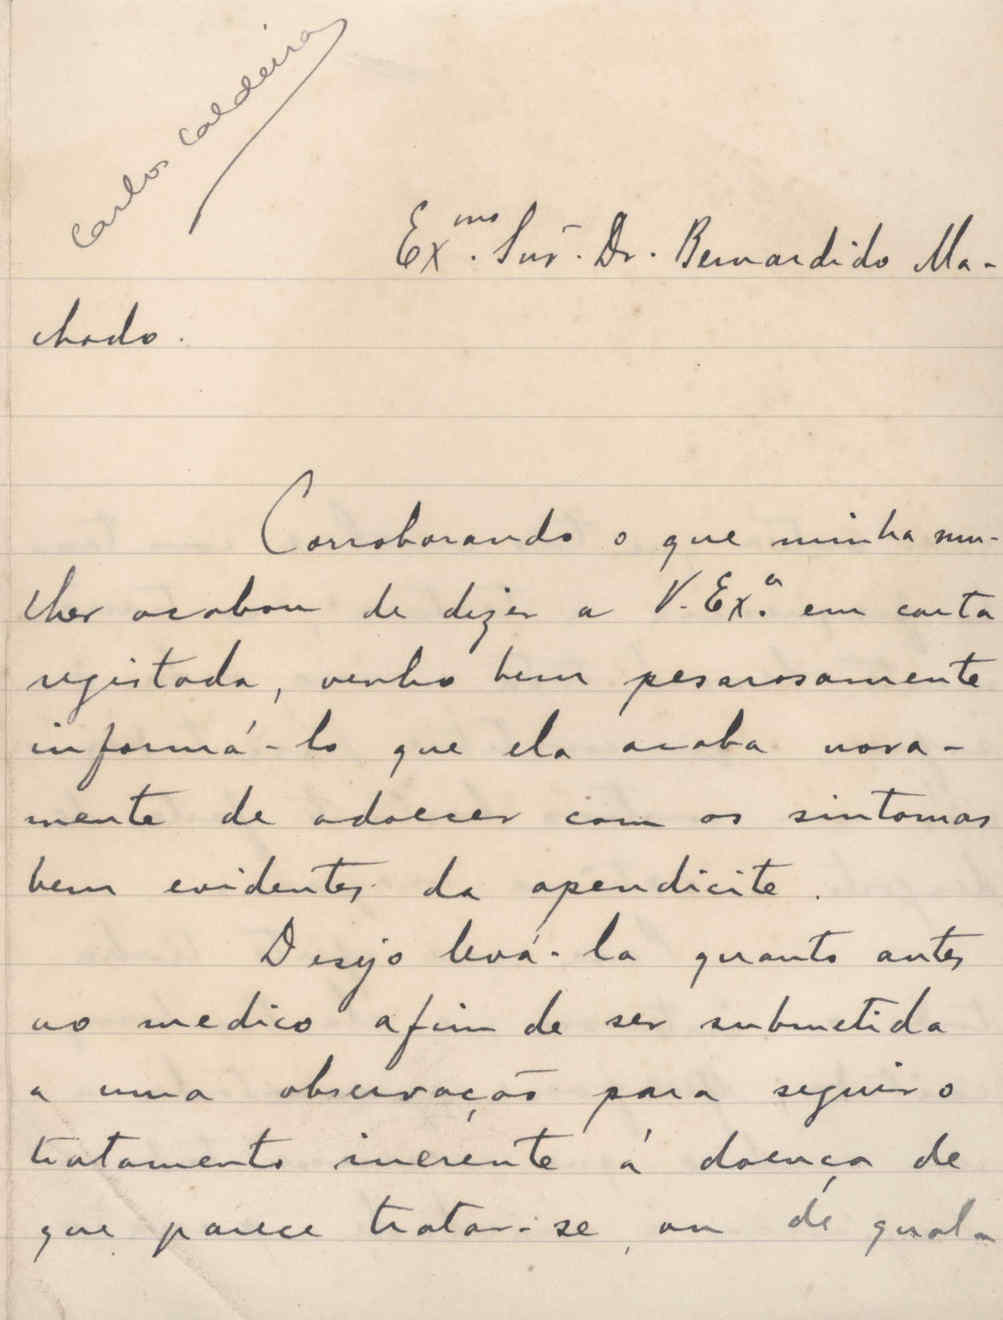 Carlos Caldeira
Ex.mo Snr. Dr. Bernardido Ma-
chado.
Corroborando o que minha mu-
lher acabou de dizer a V. Ex.a em carta
registada, venho bem pesarosamente
informá-lo que ela acaba nova-
mente de adoecer com os sintomas
bem evidentes da apendicite.
Desejo levá-la quanto antes
ao medico afim de ser submetida
a uma observação para seguir o
tratamento inerente á doença de
que parece tratar-se, ou de qual-